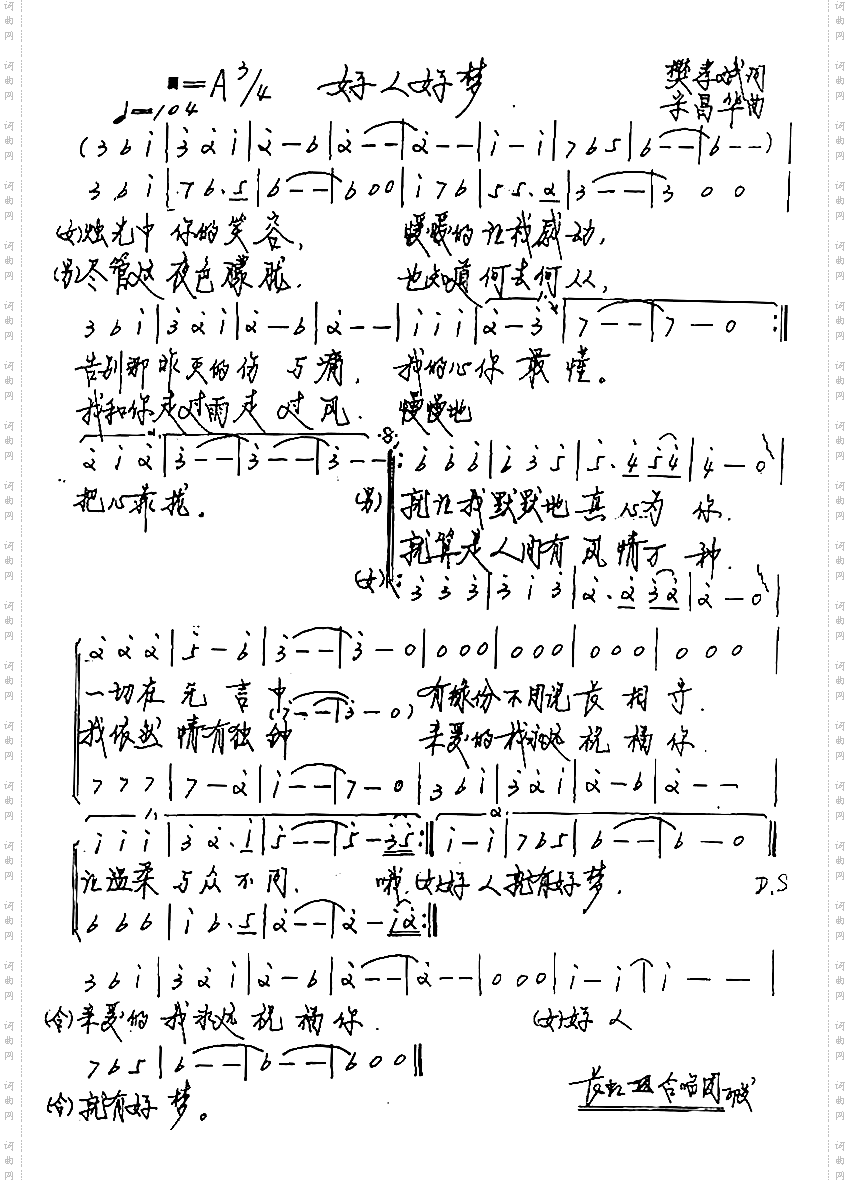 =A 3/4 好人好梦 樊孝斌词
♩=104 宋昌华曲
(3 6 i | 3 2 i | 2 - 6 | 2 - - | 2 - - | i - i | 7 6 5 | 6 - - | 6 - -) |
3 6 i | 7 6. 5 | 6 - - | 6 0 0 | i 7 6 | 5 5. 2 | 3 - - | 3 0 0 |
(女)烛光中 你的笑容, 暖暖的让我感动,
(男)尽管这夜色朦胧. 也知道何去何从,
3 6 i | 3 2 i | 2 - 6 | 2 - - | i i i | 2 - 3 | 7 - - | 7 - 0 :||
告别那昨天的伤与痛, 我的心你最懂。
我和你走过雨走过风. 慢慢地
2 i 2 | 3 - - | 3 - - | 3 - - ||: 6 6 6 | 6 3 5 | 5. 4 5 4 | 4 - 0 |
把心靠拢。 (男) 就让我默默地真心为你.
就算是人间有风情万种.
(女) :3 3 3 | 3 i 3 | 2. 2 3 2 | 2 - 0 |
2 2 2 | 5 - 6 | 3 - - | 3 - 0 | 0 0 0 | 0 0 0 | 0 0 0 | 0 0 0 |
一切在无言中 有缘份不用说长相守.
(7 - - | 3 - 0)
我依然情有独钟 亲爱的我永远祝福你.
7 7 7 | 7 - 2 | i - - | 7 - 0 | 3 6 i | 3 2 i | 2 - 6 | 2 - - |
i i i | 3 2. i | 5 - - | 5 - 3 5 :|| i - i | 7 6 5 | 6 - - | 6 - 0 ||
让温柔与众不同. 哦 (女)好人就有好梦. D.S
6 6 6 | i 6. 5 | 2 - - | 2 - i 2 :||
3 6 i | 3 2 i | 2 - 6 | 2 - - | 2 - - | 0 0 0 | i - i | i - - |
(合)亲爱的我永远祝福你. (女)好人
7 6 5 | 6 - - | 6 - - | 6 0 0 ||
(合)就有好梦。
词曲网